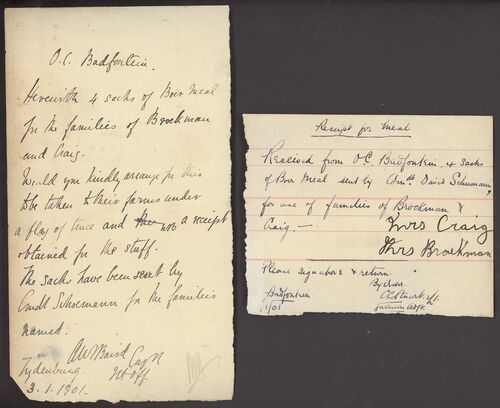 O.C. Badfontein.
Herewith 4 sacks of Boer Meal
for the families of Brockman
and Craig.
Would you kindly arrange for this
to be taken to their farms under
a flag of truce and a receipt
obtained for the stuff.
The sacks have been sent by
Cmdt Schoemann for the families
named.
AWBaird
Capt
Lydenburg.
3.1.1901.
Receipt for Meal
Received from O.C. Badfontein, 4 sacks
of Boer Meal sent by Comdt. David Schumann,
for use of families of Brockman &
Craig —
Mrs Craig
Mrs Brockman
Please signature & return
By Order.
Badfontein
/1/01